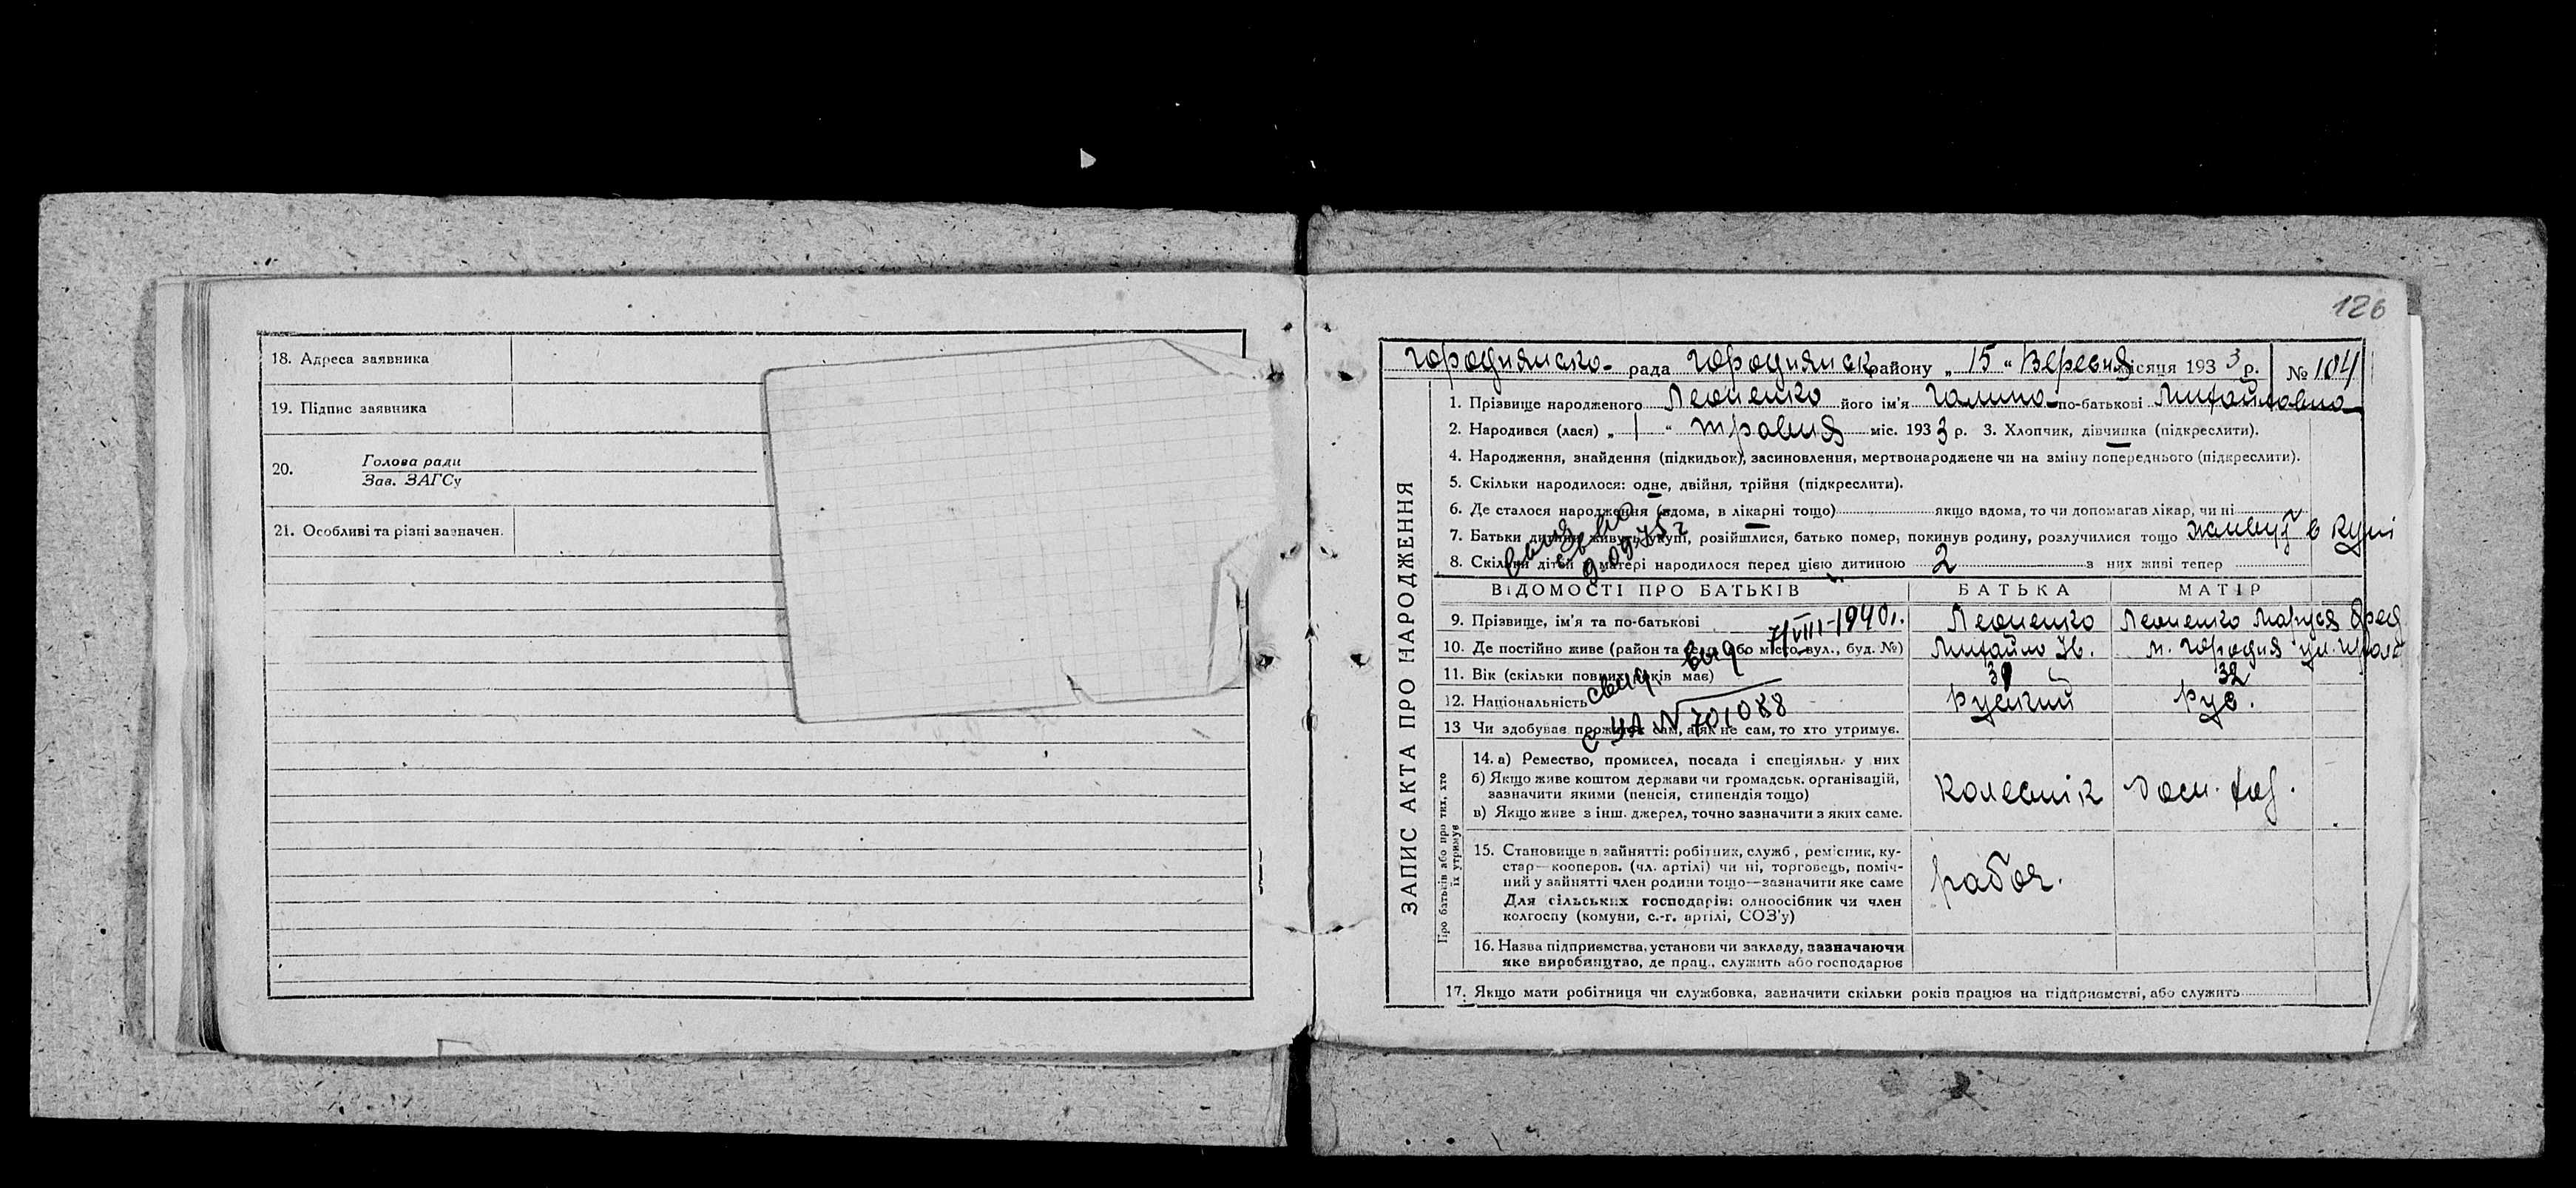 18. Адреса заявника
19. Підпис заявника
20. Голова ради
Зав. ЗАГСу
21. Особливі та різні зазначен.
126
Городнянско- рада Городнянск району „ 15 " Вересня місяця 1933 р. № 104
ЗАПИС АКТА ПРО НАРОДЖЕННЯ
1. Прізвище народженого Леоненко його ім'я Галина по-батькові Михайловна
2. Народився (лася) „ 1 " травня міс. 1933 р. 3. Хлопчик, дівчинка (підкреслити).
4. Народження, знайдення (підкидьок), засиновлення, мертвонароджене чи на зміну попереднього (підкреслити).
5. Скільки народилося: одне, двійня, трійня (підкреслити).
6. Де сталося народження (вдома, в лікарні тощо) якщо вдома, то чи допомагав лікар, чи ні
7. Батьки дитини живуть укупі, розійшлися, батько помер, покинув родину, розлучилися тощо живут в купі
8. Скільки дітей у матері народилося перед цією дитиною 2 з них живі тепер
9.09.75 г
ВІДОМОСТІ ПРО БАТЬКІВ БАТЬКА МАТІР
9. Прізвище, ім'я та по-батькові Леоненко Леоненко Маруся
10. Де постійно живе (район та село або місто, вул., буд. №) Михайло Ів. м. Городня ул.
11. Вік (скільки повних років має) 32
12. Національність Руський Рус.
13 Чи здобуває прожиток сам, а як не сам, то хто утримує.
свид выд 7/VIII-1940г.
с УА № 701088
Про батьків або про тих, хто їх утримує
14. а) Ремество, промисел, посада і спеціяльн. у них
б) Якщо живе коштом держави чи громадськ. організацій,
зазначити якими (пенсія, стипендія тощо)
в) Якщо живе з інш. джерел, точно зазначити з яких саме.
Колеснік
15. Становище в зайнятті: робітник, служб, ремісник, ку-
стар—кооперов. (чл. артілі) чи ні, торговець, поміч-
ний у зайнятті член родини тощо—зазначити яке саме
Для сільських господарів: одноосібник чи член
колгоспу (комуни, с.-г. артілі, СОЗ'у)
работ.
16. Назва підприємства, установи чи закладу, зазначаючи
яке виробництво, де прац., служить або господарює
17. Якщо мати робітниця чи службовка, зазначити скільки років працює на підприємстві, або служить